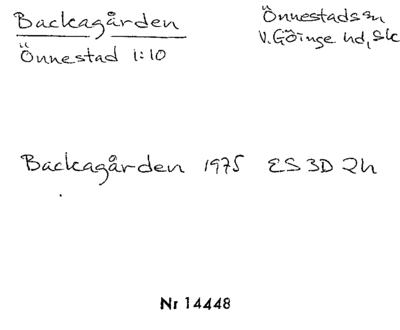 Backagården
Önnestad 1:10
Önnestads sn
V. Göinge hd, Sk
Backagården 1975 ES 3D 2h
Nr 14448